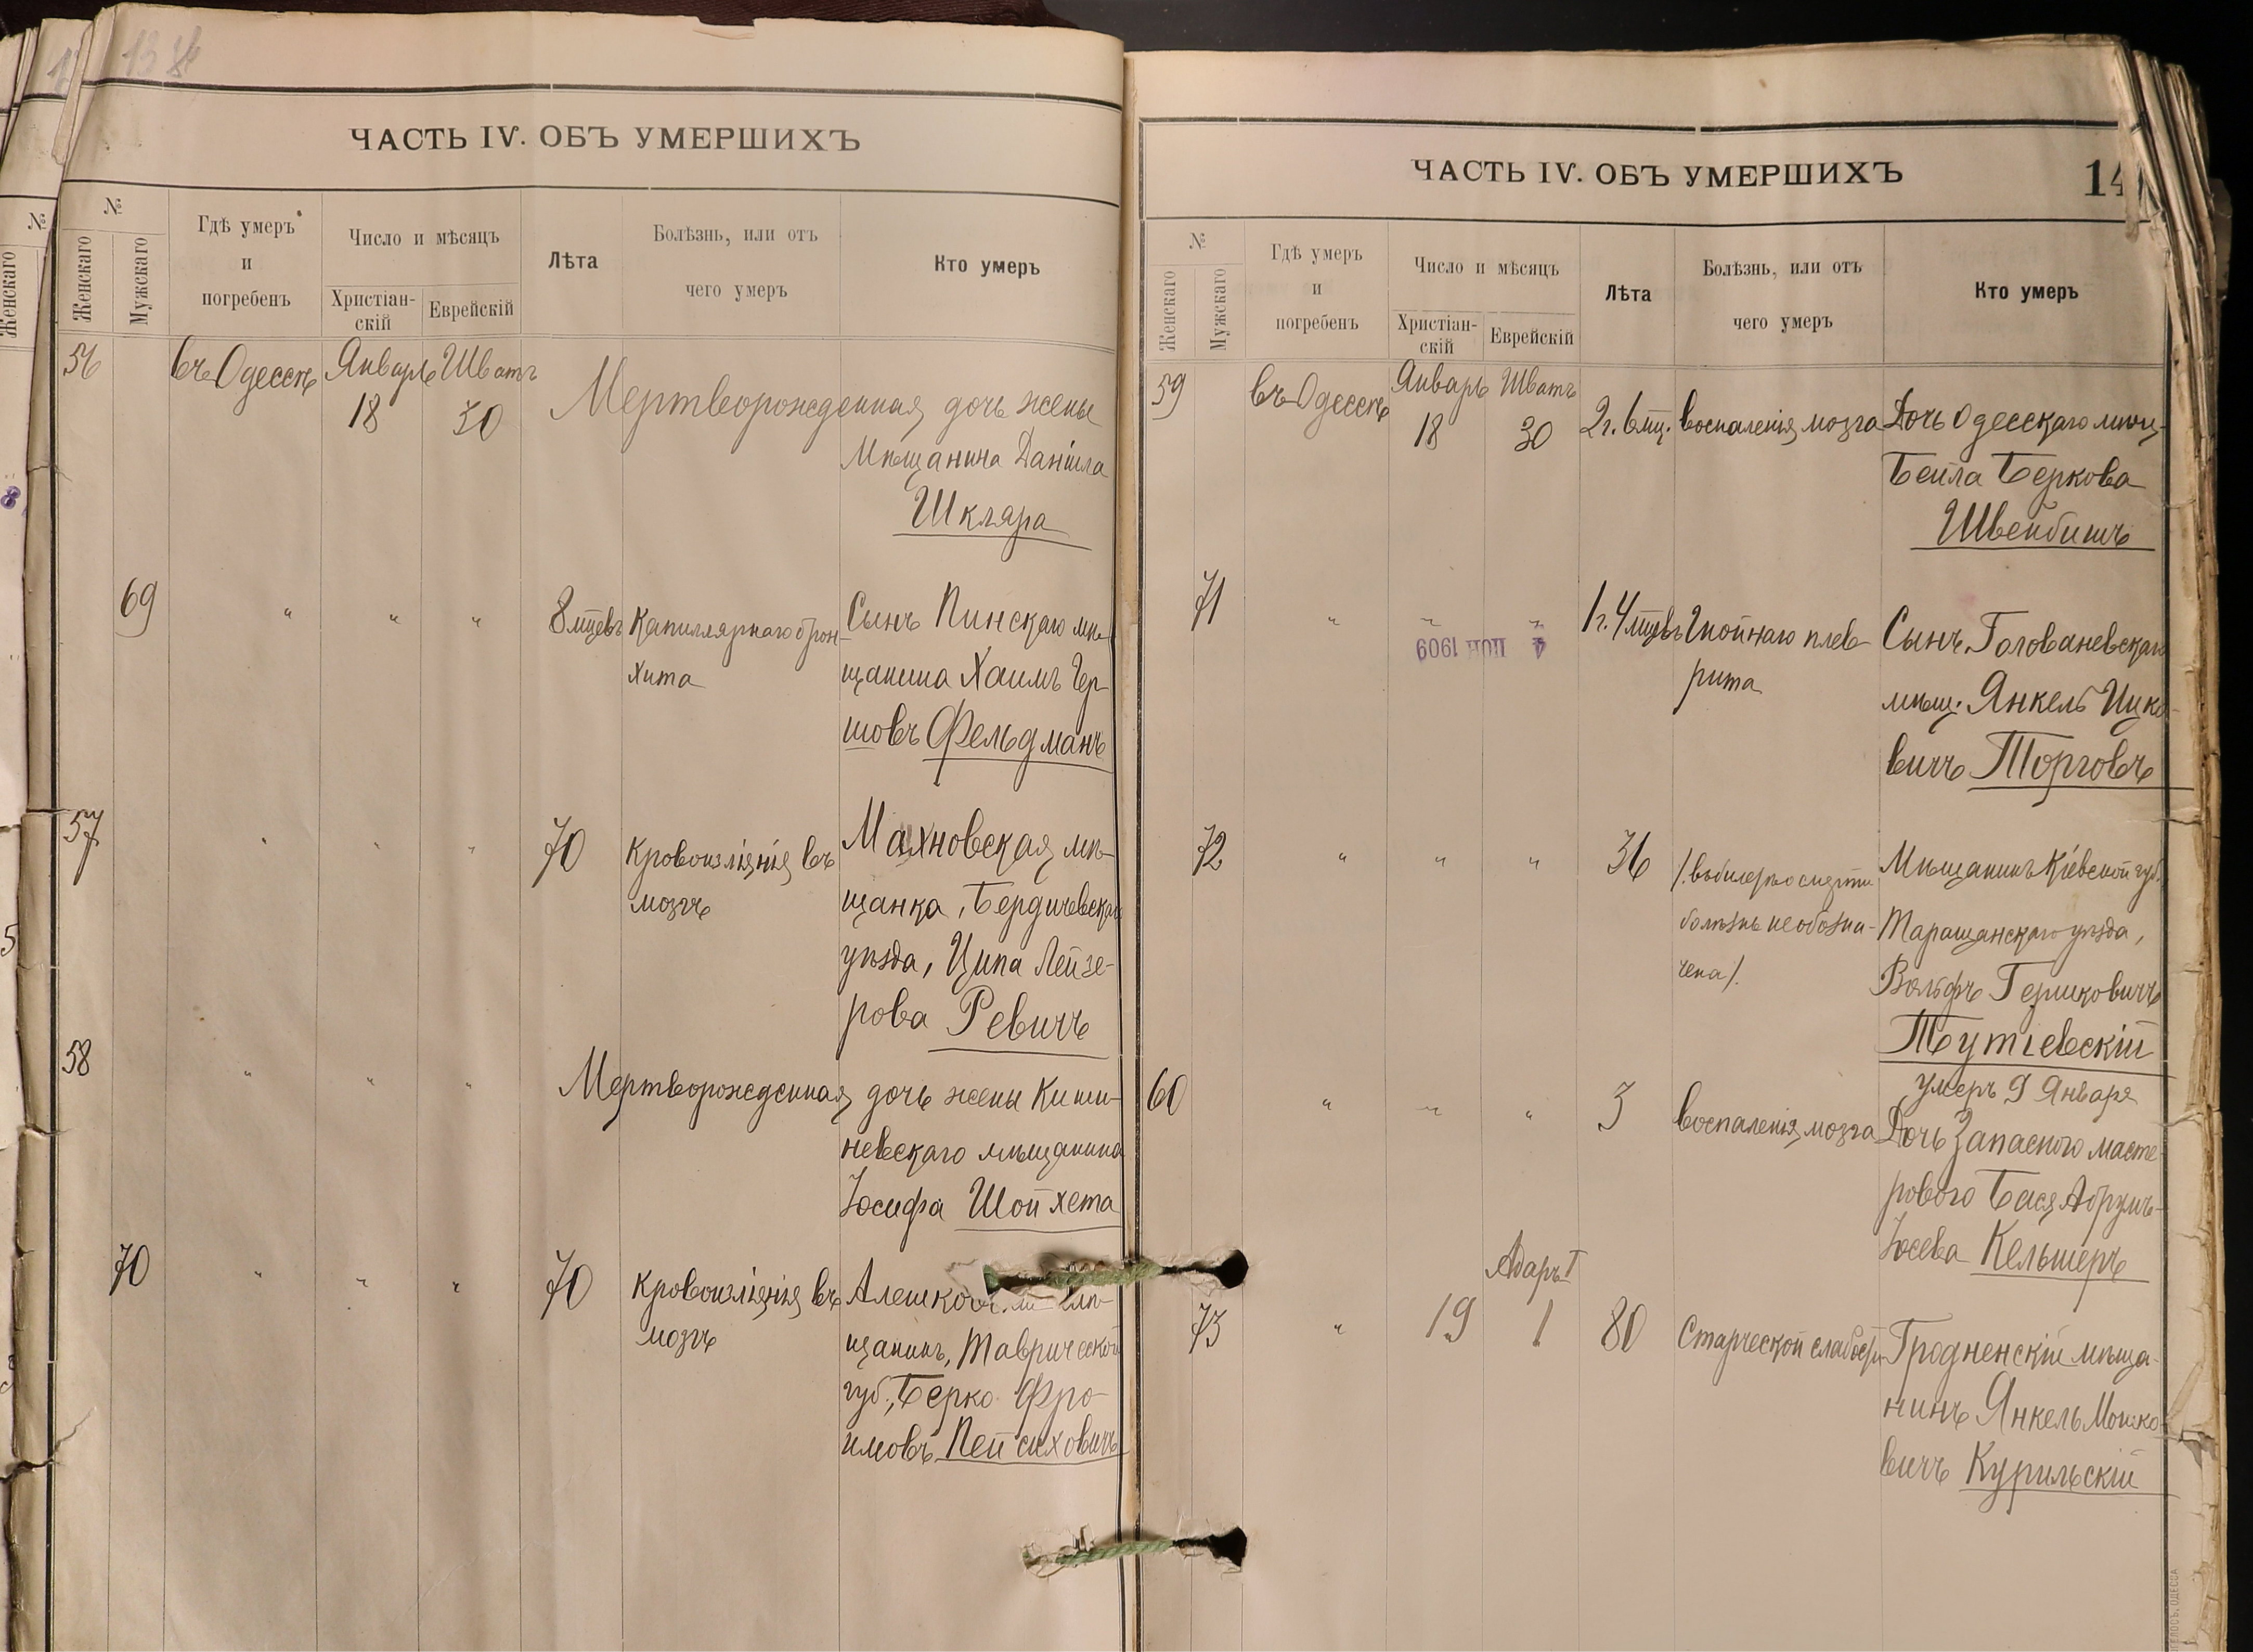 13
ЧАСТЬ IV. ОБЪ УМЕРШИХЪ
№
Женскаго
Мужскаго
Гдѣ умеръ
и
погребенъ
Число и мѣсяцъ
Христіан-
скій
Еврейскій
Лѣта
Болѣзнь, или отъ
чего умеръ
Кто умеръ
56 въ Одессѣ Январь Шватъ
18 30 Мертворожденная дочь жены
Мѣщанина Даніила
Шкляра
69 " " " 8 мцевъ Капиллярнаго брон- Сынъ Пинскаго мѣ-
хита щанина Хаимъ Гер-
шовъ Фельдманъ
57 " " " 70 Кровоизліянія въ Махновская мѣ-
мозгъ щанка, Бердичевскаго
уѣзда, Ципа Лейзе-
рова Ревичъ
58 " " " Мертворожденная дочь жены Киши-
невскаго мѣщанина
Іосифа Шойхета
70 " " " 70 Кровоизліянія въ мѣ-
мозгъ щанинъ, Таврической
губ., Берко Фро-
имовъ Пейсиховичъ
ЧАСТЬ IV. ОБЪ УМЕРШИХЪ
14
№
Женскаго
Мужскаго
Гдѣ умеръ
и
погребенъ
Число и мѣсяцъ
Христіан-
скій
Еврейскій
Лѣта
Болѣзнь, или отъ
чего умеръ
Кто умеръ
59 въ Одессѣ Январь Шватъ
18 30 2 г. 6 мц. воспаленія мозга Дочь Одесскаго мѣщ-
Бейла Беркова
Швейбишъ
71 " " " 1 г. 4 мцевъ Гнойнаго плев- Сынъ Голованевскаго
4 1909
рита мѣщ. Янкель Ицко-
вичъ Торговъ
72 " " " 36 /. въ билетѣ о смерти Мѣщанинъ Кіевской губ.
болѣзнь не обозна- Таращанскаго уѣзда,
чена /. Вольфъ Гершковичъ
Тутіевскій
умеръ 9 Января
60 " " " 3 воспаленія мозга Дочь Запасного масте-
рового Бася Абрумъ-
Іосева Кельшеръ
Адаръ I
73 " 19 1 80 Старческой слабости Гродненскій мѣща-
нинъ Янкель Мошко-
вичъ Курильскій